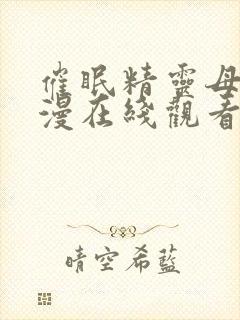 催眠精靈母
漫在綫觀看
晴空希藍